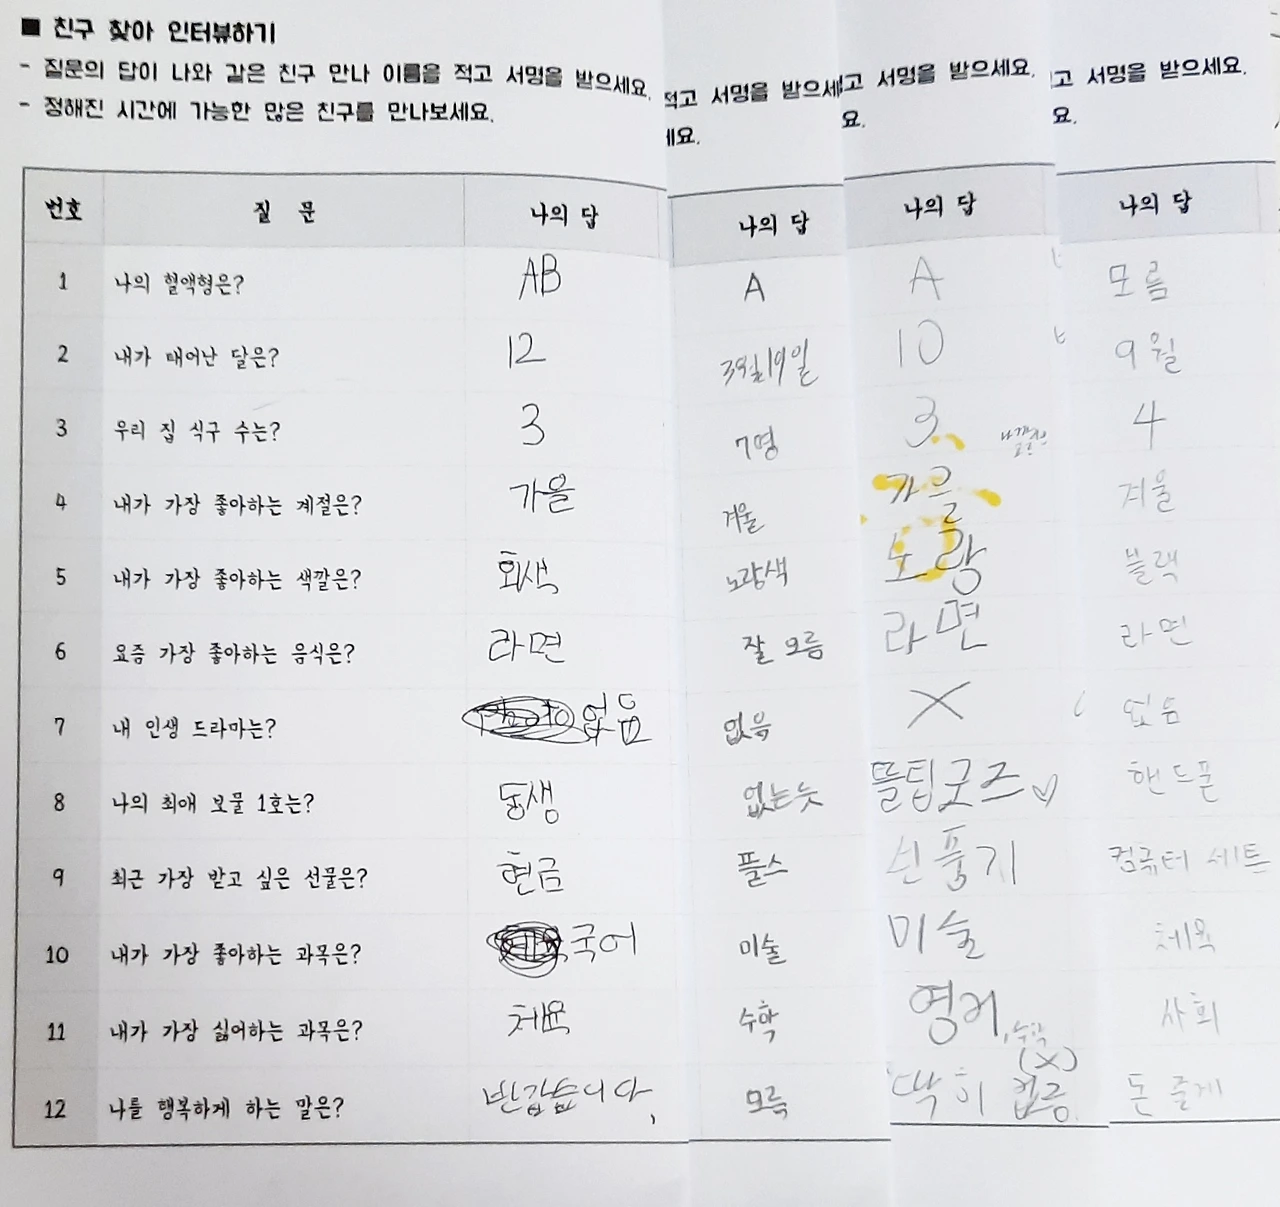 ■ 친구 찾아 인터뷰하기
- 질문의 답이 나와 같은 친구 만나 이름을 적고 서명을 받으세요. 적고 서명을 받으세 고 서명을 받으세요. 고 서명을 받으세요.
- 정해진 시간에 가능한 많은 친구를 만나보세요. 세요. 요. 요.
번호 질 문 나의 답 나의 답 나의 답 나의 답
1 나의 혈액형은? AB A A 모름
2 내가 태어난 달은? 12 3월19일 10 9월
3 우리 집 식구 수는? 3 7명 3 4
4 내가 가장 좋아하는 계절은? 가을 겨울 가을 겨울
5 내가 가장 좋아하는 색깔은? 회색 노랑색 노랑 블랙
6 요즘 가장 좋아하는 음식은? 라면 잘 모름 라면 라면
7 내 인생 드라마는? 없음 없음 X 없음
8 나의 최애 보물 1호는? 동생 없는듯 뜰팁굿즈♡ 핸드폰
9 최근 가장 받고 싶은 선물은? 현금 플스 선풍기 컴퓨터 세트
10 내가 가장 좋아하는 과목은? 국어 미술 미술 체육
11 내가 가장 싫어하는 과목은? 체육 수학 영어, 수학 사회
(X)
12 나를 행복하게 하는 말은? 반갑습니다, 모름 딱히 없음. 돈 줄게